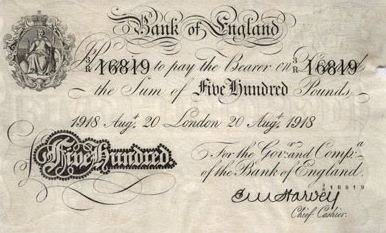 Bank of England
3/R 16819 to pay the Bearer on 3/R 16819
the Sum of Five Hundred Pounds.
1918 Augt. 20 London 20 Augt. 1918
Five Hundred.
For the Govr. and Compa.
of the Bank of England.
16819
E M Harvey
Chief Cashier.